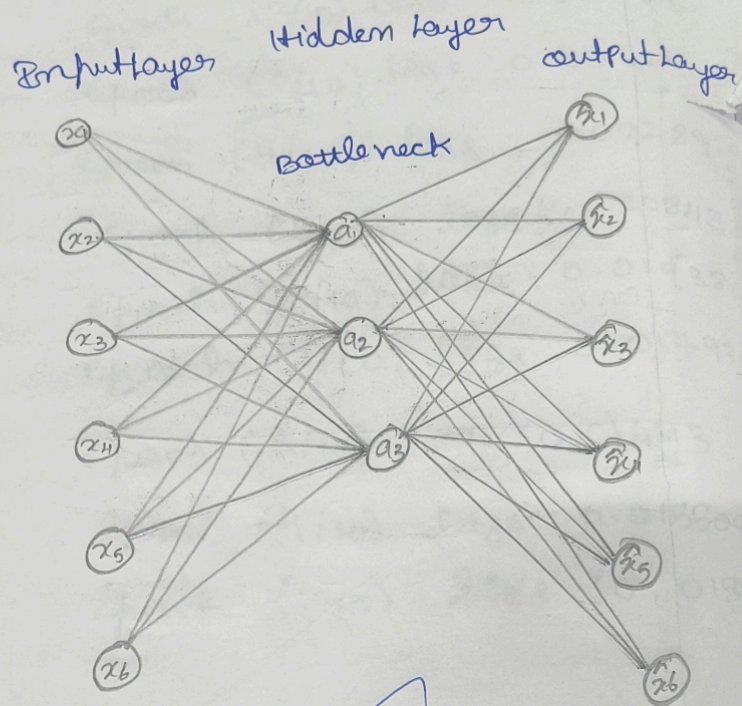 Input Layer
Hidden Layer
Output Layer
Bottleneck
x1
x2
x3
x4
x5
x6
a1
a2
a3
x̂1
x̂2
x̂3
x̂4
x̂5
x̂6